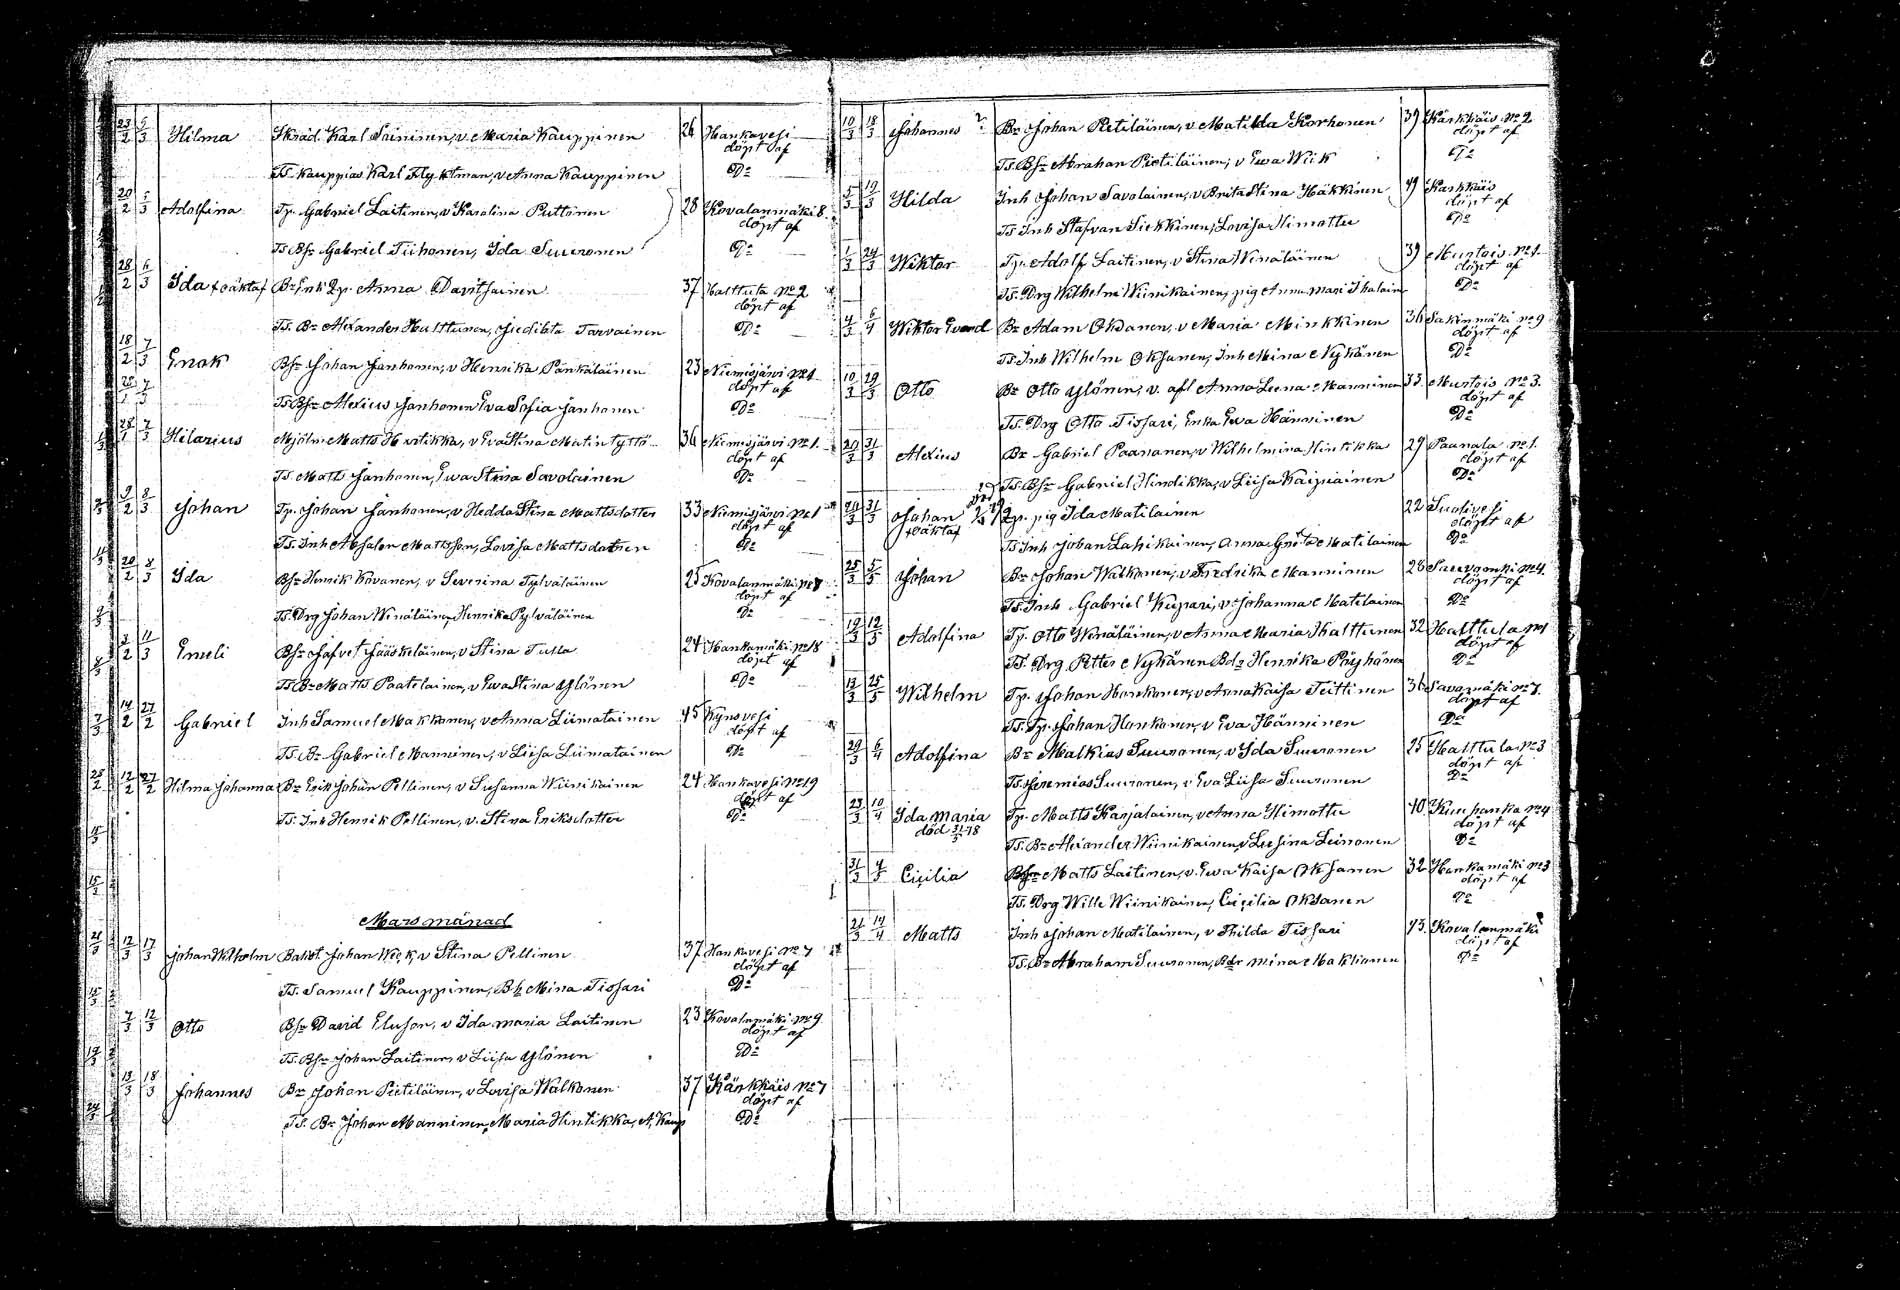 23/2 5/3 Hilma Skräd. Karl Soininen, v Maria Kauppinen 26 Hankavesi
döpt af
Ts. Kauppias Karl Flyktman, v Anna Kauppinen Do
20/2 5/3 Adolfina Tp. Gabriel Laitinen, v Karolina Puttonen 28 Kovalanmäki 8.
döpt af
Ts Bsr Gabriel Tiihonen, Ida Suuronen Do
28/2 6/3 Ida oäkta Br Enk Qp. Anna Davitsainen 37 Halttula No 2
döpt af
Ts. Br Alexander Halttunen, Tarvainen Do
18/2 7/3 Enok Bsr Johan Janhonen, v Henrika Pänkäläinen 23 Niemisjärvi No 1
döpt af
7/3 Ts Bsr Alexius Janhonen Eva Sofia Janhonen Do
28/1 7/3 Hilarius Mjöln Matts Hintikka, v Eva Stina Matintyttö 36 Niemisjärvi No 1
döpt af
Ts. Matts Janhonen, Ewa Stina Savolainen Do
9/2 8/3 Johan Tp. Johan Janhonen, v Hedda Stina Mattsdotter 33 Niemisjärvi No 1
döpt af
Ts. Inh Absalon Mattsson, Lovisa Mattsdotter Do
20/2 8/3 Ida Bsr Henrik Kovanen, v Severina Pylväläinen 25 Kovalanmäki No 8
döpt af
Ts. Drg Johan Winäläinen, Henrika Pylväläinen Do
3/2 11/3 Emeli Bsr Jafvet Jääskeläinen, v Stina Tulla 24 Hankamäki No 18
döpt af
Ts Br Matts Paatelainen, v Ewa Stina Ylönen Do
14/2 27/2 Gabriel Inh Samuel Makkonen, v Anna Liimatainen 45 Kynsvesi
döpt af
Ts. Br Gabriel Manninen, v Liisa Liimatainen Do
12/2 27/2 Hilma Johanna Br Erik Johan Pellinen, v Susanna Wiinikainen 24 Hankavesi No 19
döpt af
Ts. Inh Henrik Pellinen, v. Stina Eriksdotter Do
Mars månad
12/3 17/3 Johan Wilhelm Johan Wiik, v Stina Pellinen 37 Hankavesi No 7
döpt af
Ts. Samuel Kauppinen, Mina Tissari Do
7/3 12/3 Otto Bsr David Eluson, v Ida Maria Laitinen 23 Kovalamäki No 9
döpt af
Ts. Bsr Johan Laitinen, v Liisa Ylönen Do
13/3 18/3 Johannes Br Johan Pietiläinen, v Lovisa Walkonen 37 Kärkkäis No 7
döpt af
Ts. Br Johan Manninen, Maria Hintikka, A. Kaup Do
10/3 18/3 Johannes Br Johan Pietiläinen, v Matilda Korhonen 39 Kärkkäis No 2
döpt af
Ts Bsr Abrahan Pietiläinen, v Ewa Wiik Do
5/3 19/3 Hilda Inh Johan Savolainen, v Brita Stina Häkkinen 49 Karkkäis
döpt af
Ts Inh Stafvan Siekkinen, Lovisa Himottu Do
1/3 24/3 Wiktor Tp. Adolf Laitinen, v Stina Winäläinen 39 Murtois No 1
döpt af
Ts. Drg Wilhelm Wiinikainen, pig Anna Mari Ihalain Do
4/3 6/4 Wiktor Evard Br Adam Oksanen, v Maria Minkkinen 36 Sakinmäki No 9
döpt af
Ts. Inh Wilhelm Oksanen, Inh Mina Nykänen Do
10/3 29/3 Otto Br Otto Ylönen, v. afl Anna Leena Manninen 33. Murtois No 3.
döpt af
Ts. Drg Otto Tissari, Enka Ewa Hänninen Do
20/3 31/3 Alexius Br Gabriel Paananen, v Wilhelmina Hintikka 29 Paanala No 1.
döpt af
Ts. Bsr Gabriel Hindikka, v Liisa Kaipiainen Do
20/3 31/3 Johan död Qp. pig Ida Matilainen 22 Suolivesi
oäkta döpt af
Ts Inh Johan Lahikainen, Anna Greta Matilainen Do
25/3 5/5 Johan Br Johan Walkonen, v Fredrika Manninen 28 Sauvomki No 4.
döpt af
Ts. Inh Gabriel Kupari, v Johanna Matilainen Do
19/3 12/5 Adolfina Tp. Otto Winäläinen, v Anna Maria Halttunen 32 Halttula No 1
döpt af
Ts. Drg Petter Nykänen Bdr Henrika Pöyhönen Do
13/3 25/5 Wilhelm Tp. Johan Honkonen, v Anna Kaisa Teittinen 36 Savomäki No 7.
döpt af
Ts. Tp. Johan Honkonen, v Eva Hänninen Do
29/3 6/4 Adolfina Br Malkias Suuronen, v Ida Suuronen 25 Halttula No 3
döpt af
Ts. Jeremias Suuronen, v Eva Liisa Suuronen Do
23/3 10/4 Ida Maria Tp. Matts Karjalainen, v Anna Himottu 40. Kuuhanka No 4
död 31/3 78 döpt af
Ts. Br Alexander Wiinikainen, v Lusina Leinonen Do
31/3 4/5 Cicilia Bsr Matts Laitinen, v. Ewa Kaisa Oksanen 32 Hankamäki No 3
döpt af
Ts. Drg Wille Wiinikainen, Cicilia Oksanen Do
21/3 14/4 Matts Inh Johan Matilainen, v Thilda Tissari 43. Kovalanmäki
döpt af
Ts. Br Abraham Suuronen, Bdr Mina Makkonen Do